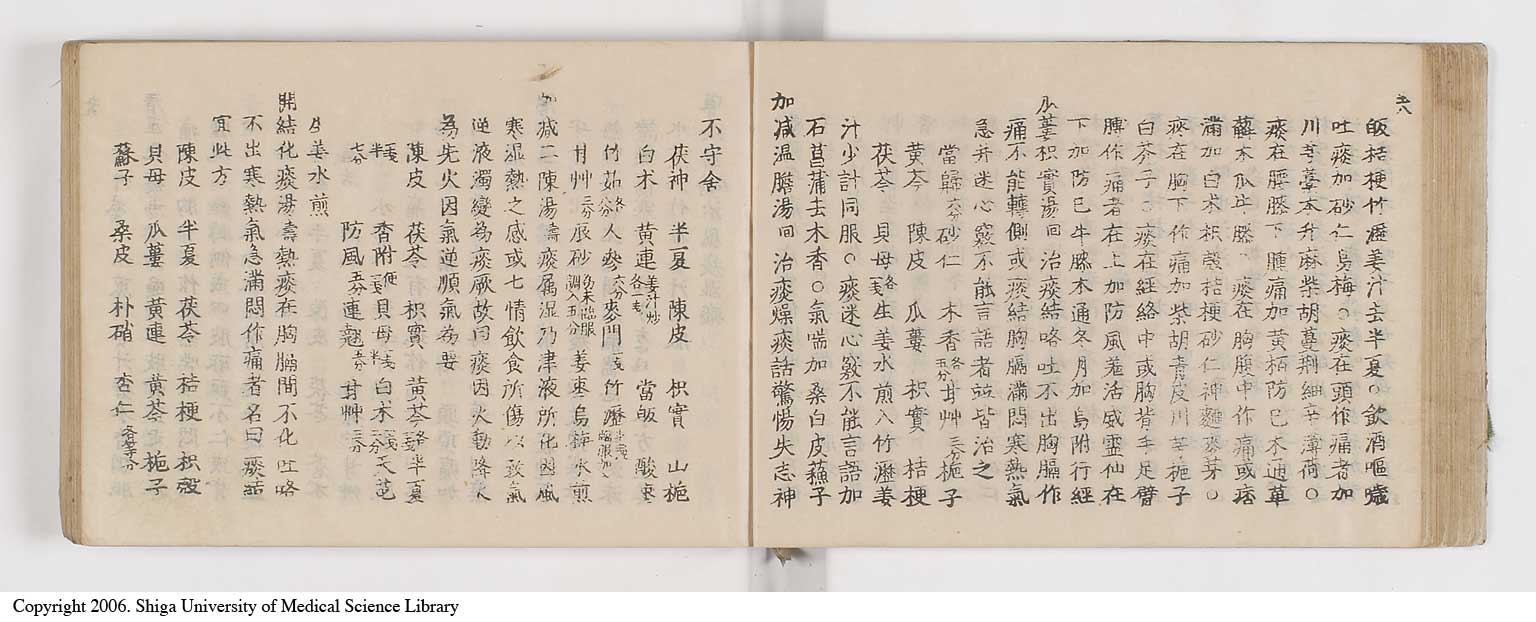 五八
皈桔梗竹瀝姜汁去半夏○飲酒嘔噦
吐痰加砂仁烏梅○痰在頭作痛者加
川芎藁本升麻柴胡蔓荊細辛薄荷○
痰在腰膝下腫痛加黄栢防己木通萆
薢木瓜牛膝○痰在胸腹中作痛或痞
滿加白朮枳殼桔梗砂仁神麯麥芽○
痰在胸下作痛加柴胡青皮川芎梔子
白芥子○痰在經絡中或胸背手足臂
脾作痛者在上加防風羗活威靈仙在
下加防己牛膝木通冬月加烏附行經
瓜蔞枳實湯 回 治痰結咯吐不出胸膈作
痛不能轉側或痰結胸膈滿悶寒熱氣
急并迷心竅不能言語者竝皆治之
當歸六分 砂仁 木香各五分 甘艸三分 梔子
黄芩 陳皮 瓜蔞 枳實 桔梗
茯苓 貝母各一戔 生姜水煎入竹瀝姜
汁少計同服○痰迷心竅不能言語加
石菖蒲去木香○氣喘加桑白皮蘓子
加减温膽湯 回 治痰燥痰話驚惕失志神
不守舍
茯神 半夏 陳皮 枳實 山梔
白朮 黄連姜汁炒各一戔 當皈 酸棗
竹茹各八分 人參六分 麥門一戔 竹瀝半戔臨服加
甘艸三分 辰砂為末臨服調入五分 姜棗烏梅水煎
加减二陳湯 濤 痰属湿乃津液所化因風
寒湿熱之感或七情飲食所傷以致氣
逆液濁變為痰厥故曰痰因火動降火
為先火因氣逆順氣為要
陳皮 茯苓 枳實 黄芩各一戔 半夏
一戔半七分 香附便一戔 貝母一戔半 白朮一戔二分 天芼
防風五分 連翹五分 甘艸三分
生姜水煎
開結化痰湯 濤 熱痰在胸膈間不化吐咯
不出寒熱氣急滿悶作痛者名曰痰結
宜此方
陳皮 半夏 茯苓 桔梗 枳殼
貝母 瓜蔞 黄連 黄芩 梔子
蘇子 桑皮 朴硝 杏仁各等分